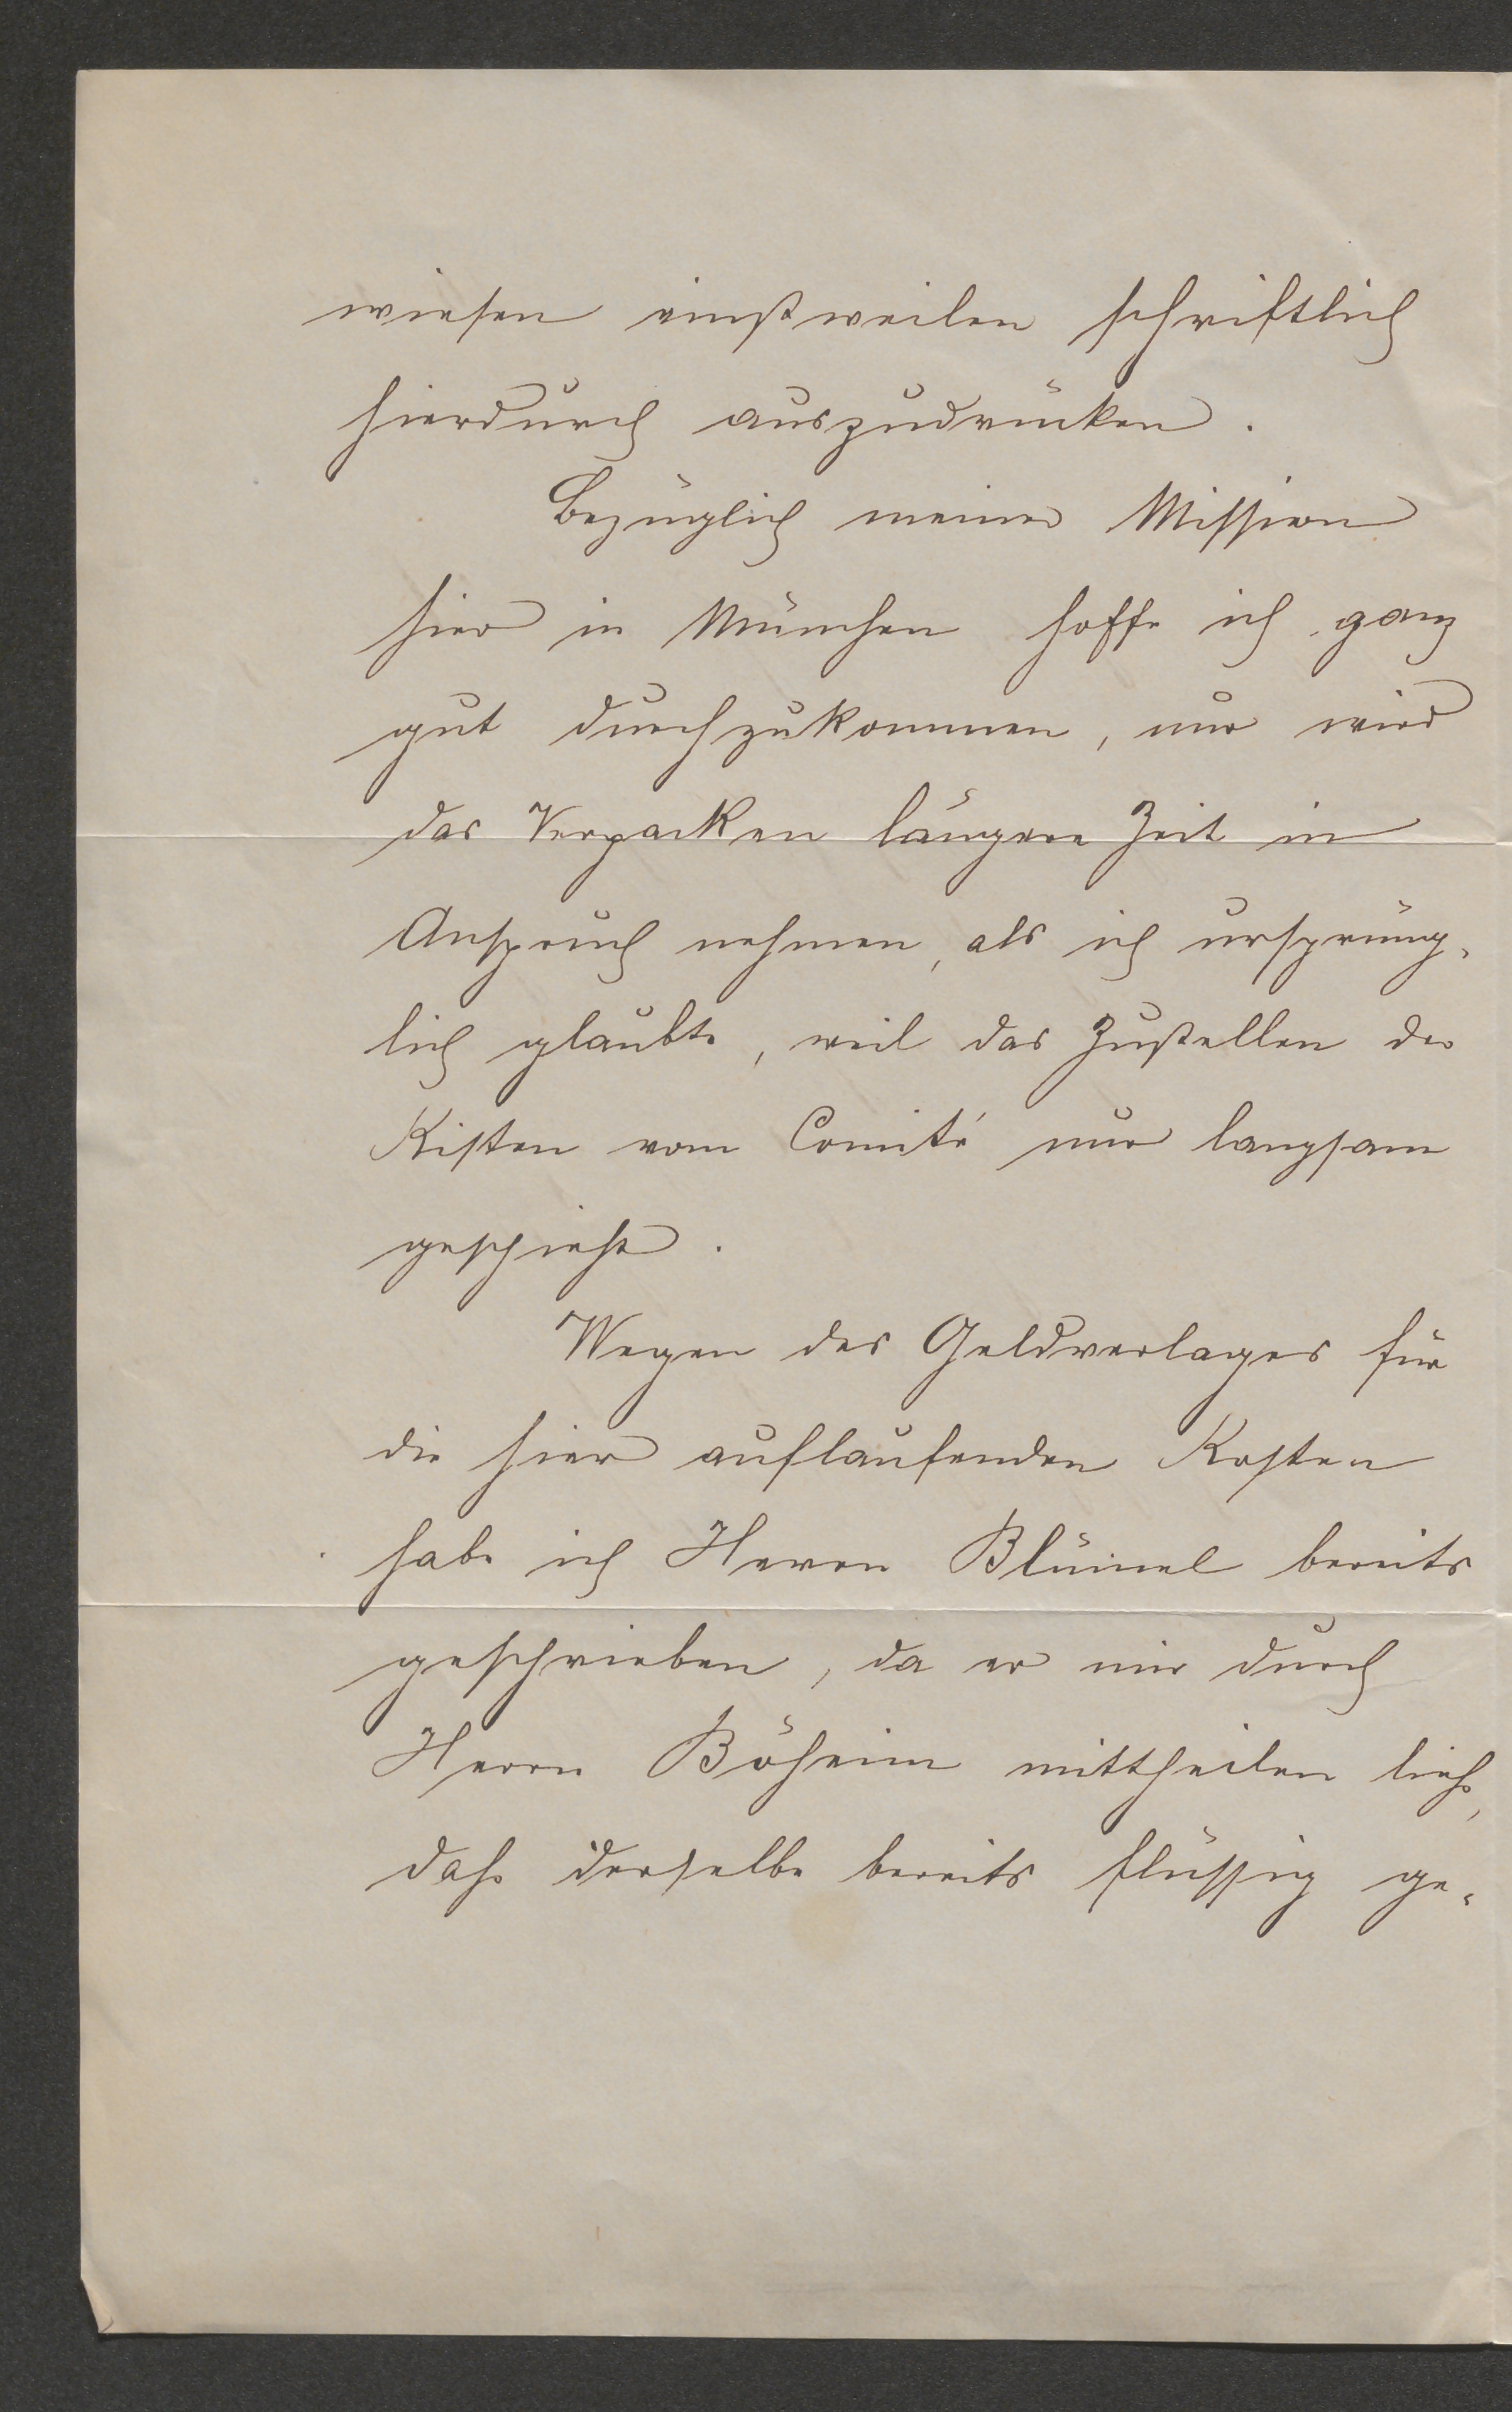 wiesen einstweilen schriftlich
hierdurch auszudrücken.
Bezüglich meiner Mission
hier in München hoffe ich ganz
gut durchzukommen, nur wird
das Verpacken längere Zeit in
Anspruch nehmen, als ich ursprüng-
lich glaubte, weil das Zustellen der
Kisten vom Comité nur langsam
geschieht.
Wegen des Geldverlages für
die hier auflaufenden Kosten
habe ich Herrn Blümel bereits
geschrieben, da er mir durch
Herrn Böheim mittheilen ließ,
daß derselbe bereits flüssig ge-